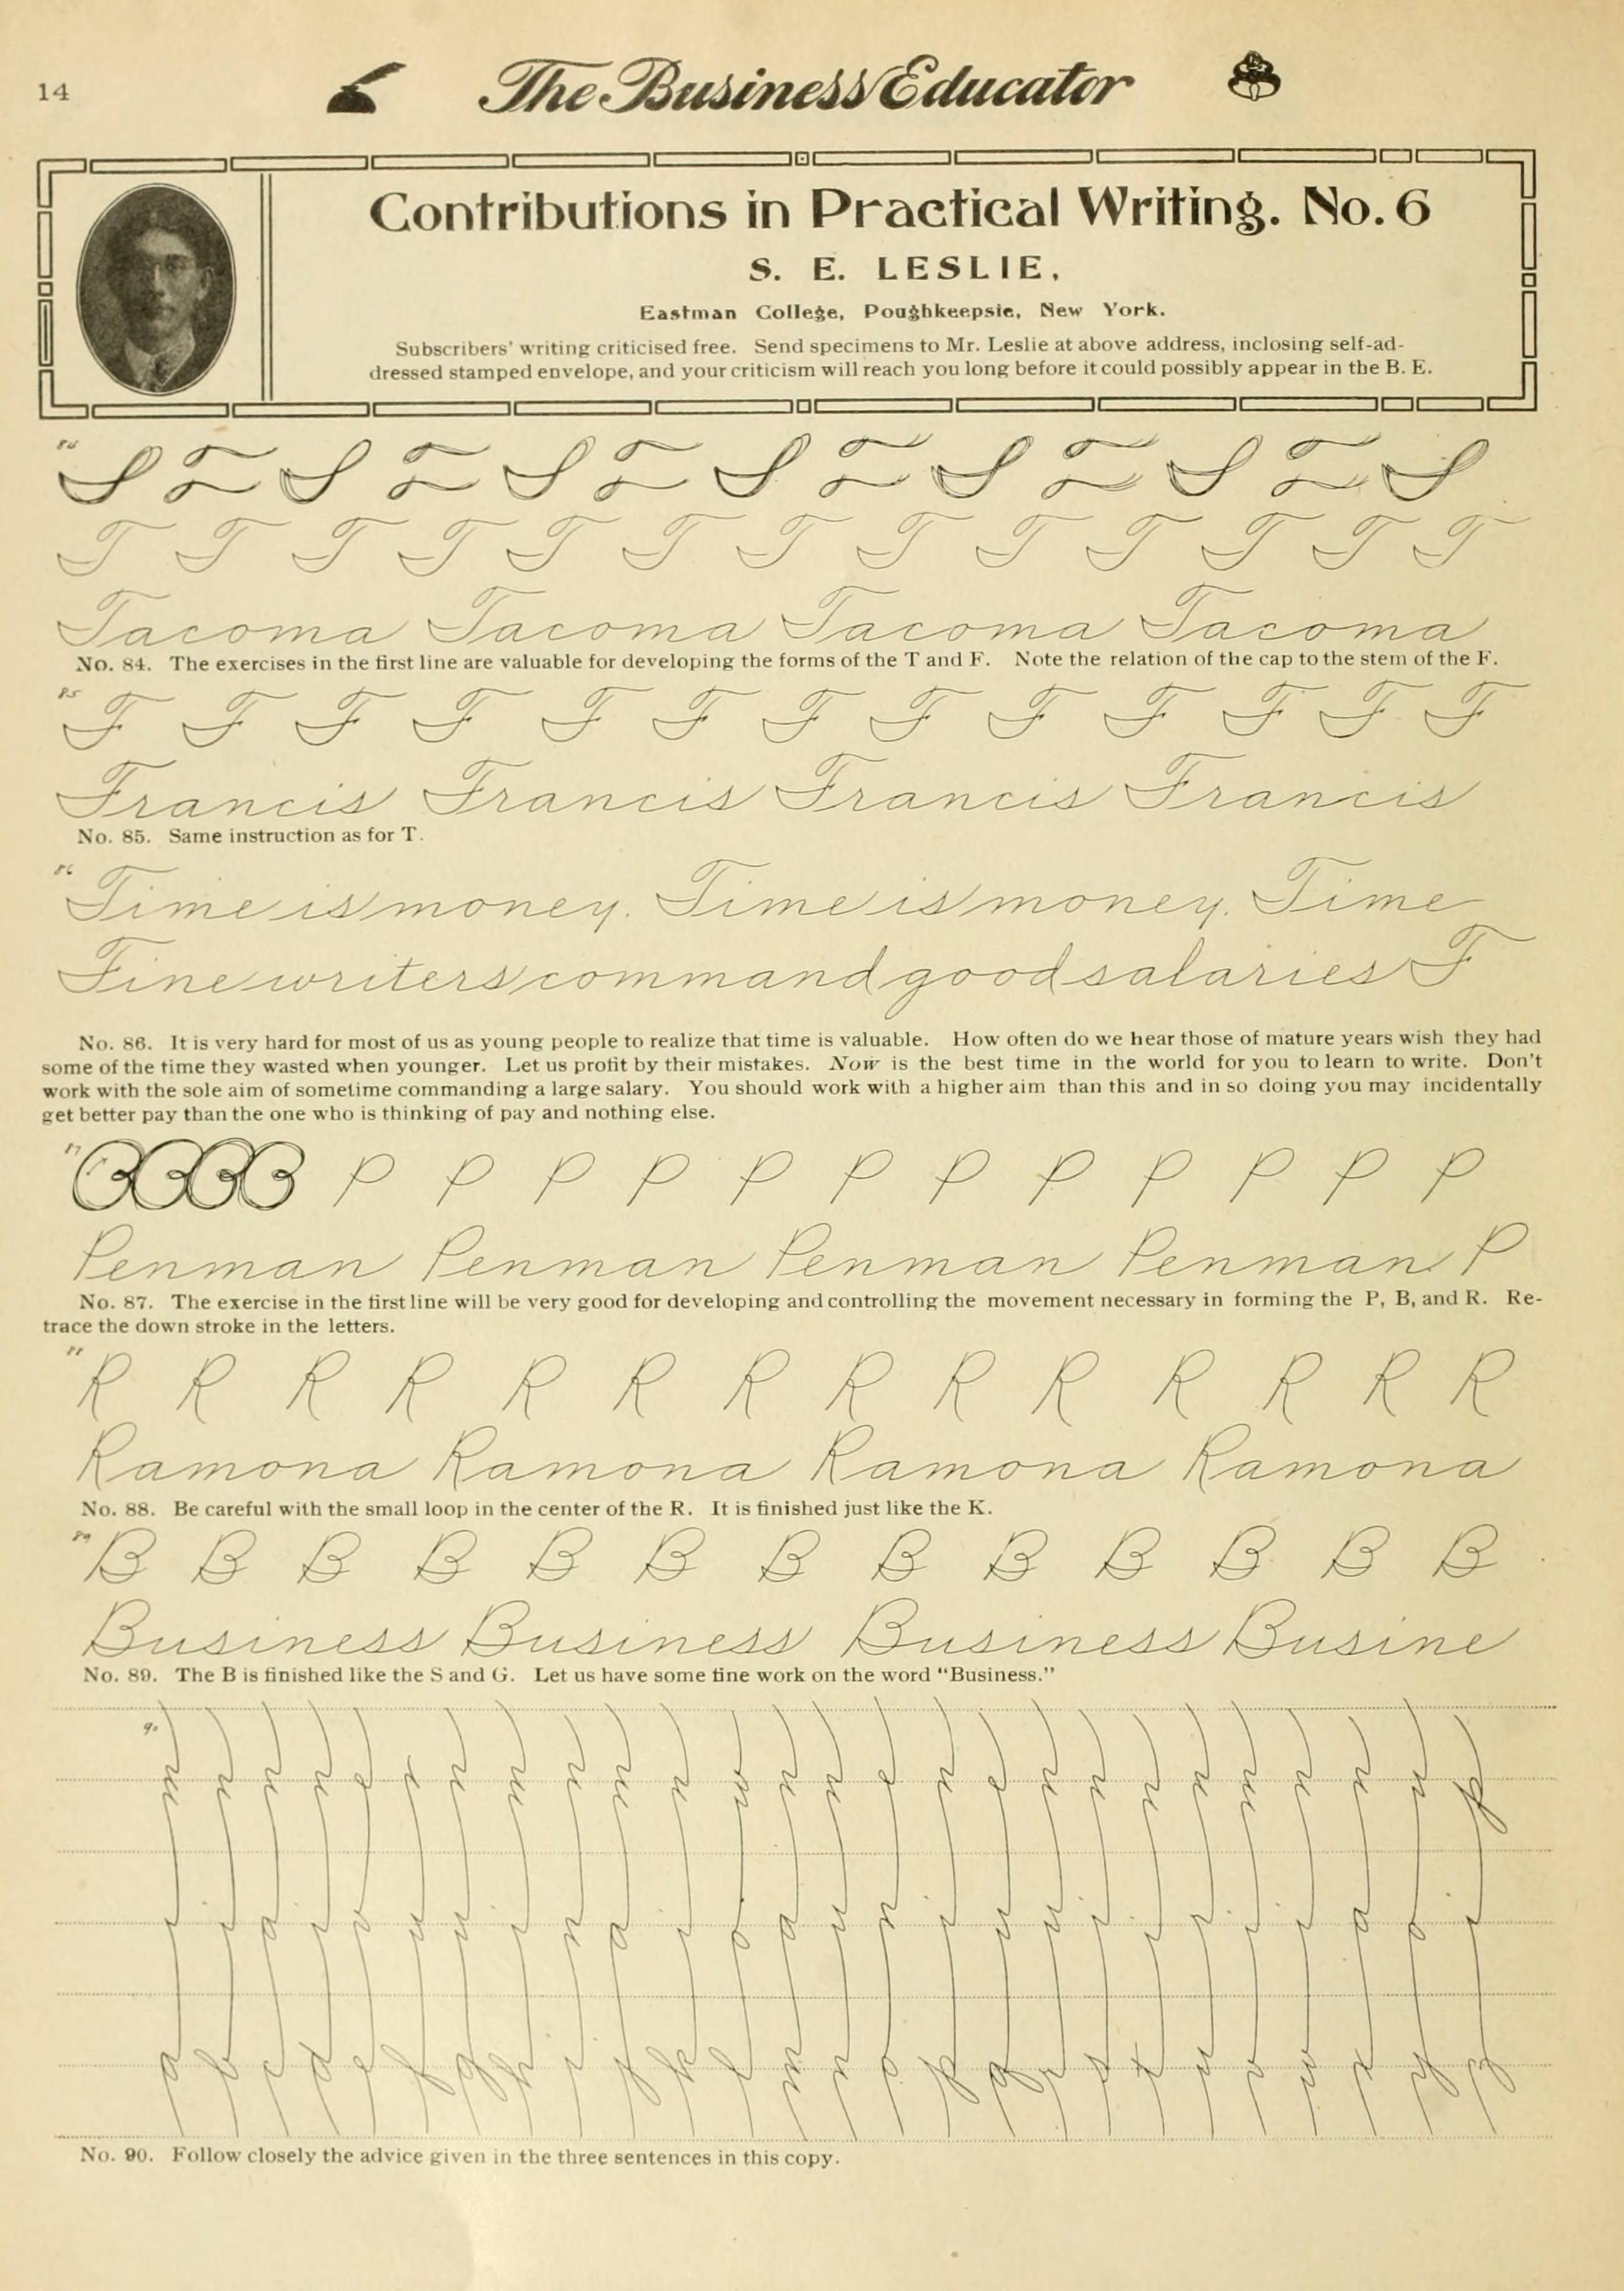 14
The Business Educator
Contributions in Practical Writing. No. 6
S. E. LESLIE,
Eastman College, Poughkeepsie, New York.
Subscribers' writing criticised free. Send specimens to Mr. Leslie at above address, inclosing self-ad-
dressed stamped envelope, and your criticism will reach you long before it could possibly appear in the B. E.
84
T T T T T T T T T T T T T
Tacoma Tacoma Tacoma Tacoma
No. 84. The exercises in the first line are valuable for developing the forms of the T and F. Note the relation of the cap to the stem of the F.
85
F F F F F F F F F F F F F
Francis Francis Francis Francis
No. 85. Same instruction as for T.
86
Time is money. Time is money. Time
Fine writers command good salaries F
No. 86. It is very hard for most of us as young people to realize that time is valuable. How often do we hear those of mature years wish they had
some of the time they wasted when younger. Let us profit by their mistakes. Now is the best time in the world for you to learn to write. Don't
work with the sole aim of sometime commanding a large salary. You should work with a higher aim than this and in so doing you may incidentally
get better pay than the one who is thinking of pay and nothing else.
87
P P P P P P P P P P P P
Penman Penman Penman Penman P
No. 87. The exercise in the first line will be very good for developing and controlling the movement necessary in forming the P, B, and R. Re-
trace the down stroke in the letters.
88
R R R R R R R R R R R R R R
Ramona Ramona Ramona Ramona
No. 88. Be careful with the small loop in the center of the R. It is finished just like the K.
89
B B B B B B B B B B B B B
Business Business Business Busine
No. 89. The B is finished like the S and G. Let us have some fine work on the word "Business."
90
a b c d e f g h i j k l m n o p q r s t u v w x y z
No. 90. Follow closely the advice given in the three sentences in this copy.